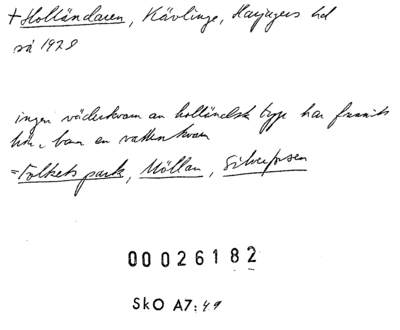 + Holländaren, Kävlinge, Harjagers hd
så 1928
ingen väderkvarn av holländsk typ har funnits
här, bara en vattenkvarn
= Folkets park, Möllan, Silverforsen
00026182
SkO A7:49